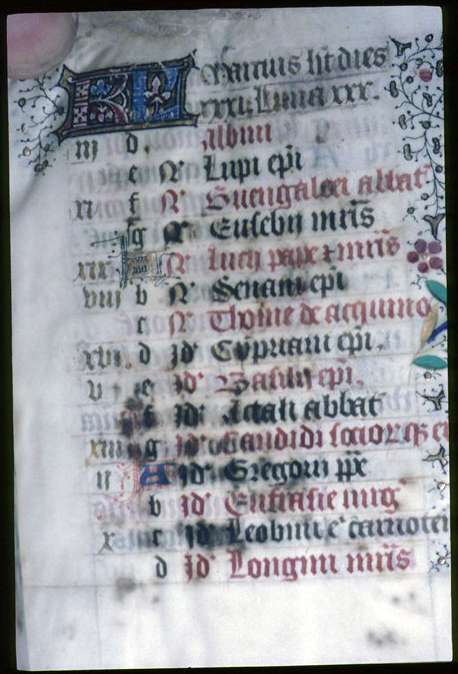 KL Marcius habet dies
xxxi. Luna xxx.
iii d. Albini
e N Lupi epi
xi f N Guengaloei abbat
g N Eusebii mris
xix A N Lucii pape z mris
viii b N Senani epi
c N Thome de acquino
xvi. d Id Cypriani epi.
v e Id Basilii epi.
f Id Actali abbat
xiii g Id Candidi socior
ii A Id Gregorii pp
b Id Eufrasie virg
x c Id Leobini e carnoten
d Id Longini mris